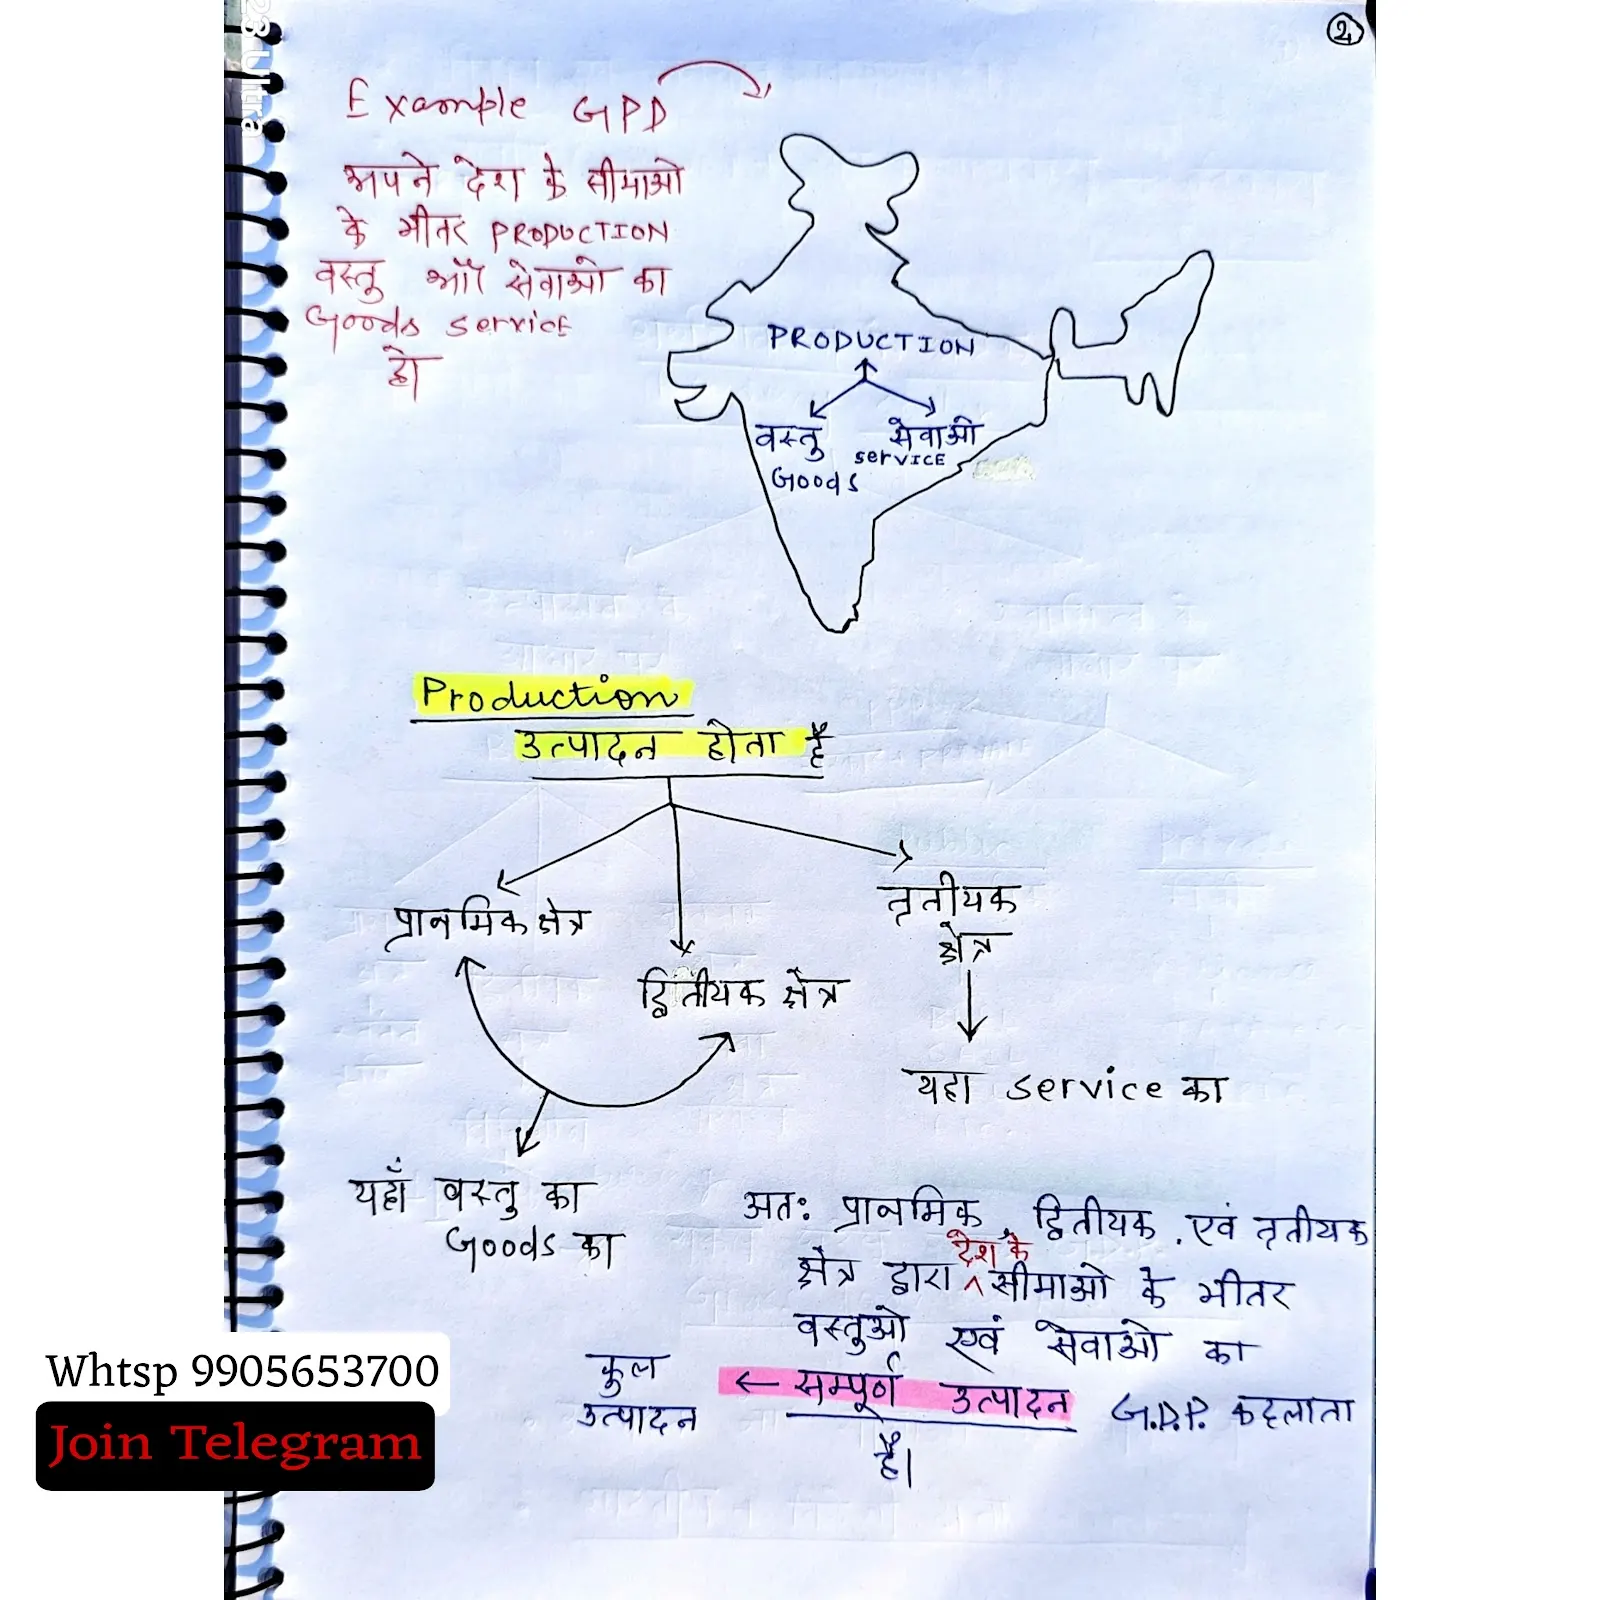 2
23 Ultra
Example GPD
अपने देश के सीमाओ
के भीतर PRODUCTION
वस्तु और सेवाओ का
Goods service
हो
PRODUCTION
वस्तु सेवाओ
service
Goods
Production
उत्पादन होता है
प्राथमिक क्षेत्र
तृतीयक
क्षेत्र
द्वितीयक क्षेत्र
यहा service का
यहाँ वस्तु का
Goods का
अतः प्राथमिक, द्वितीयक, एवं तृतीयक
क्षेत्र द्वारा देश के सीमाओ के भीतर
वस्तुओ एवं सेवाओ का
कुल उत्पादन ← सम्पूर्ण उत्पादन G.D.P. कहलाता
है।
Whtsp 9905653700
Join Telegram